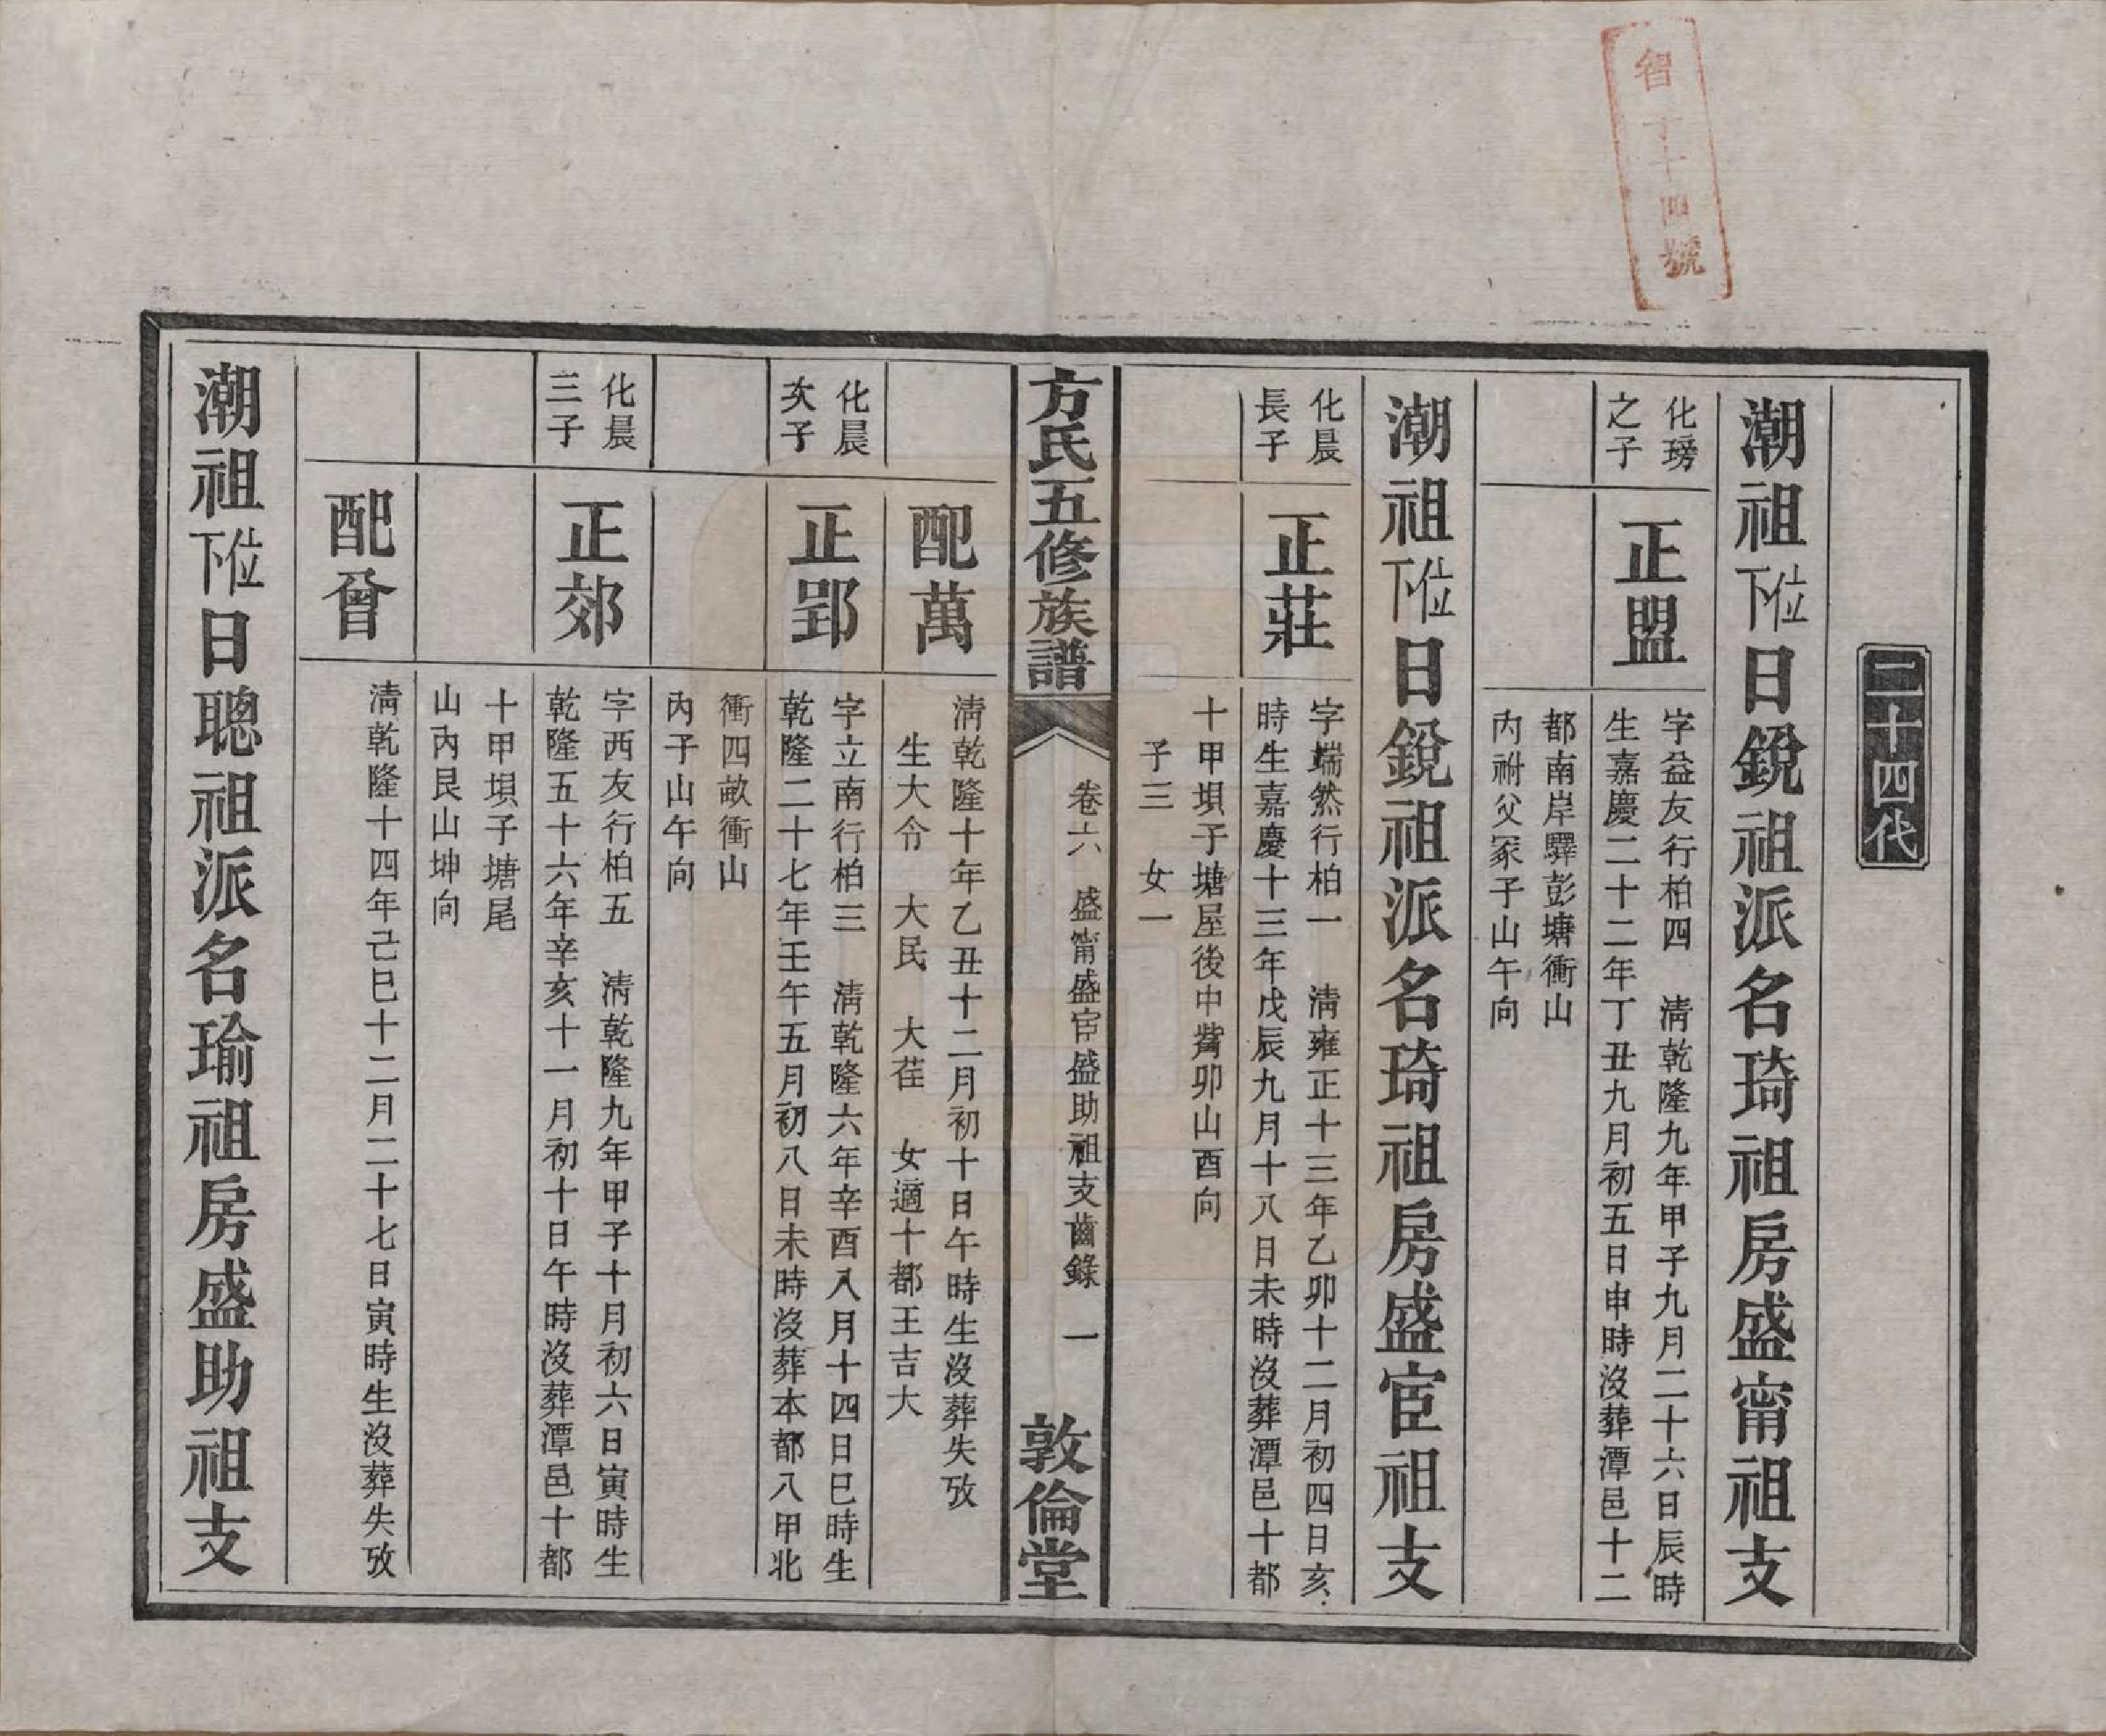 智字十四號
二十四代
潮祖位下日銳祖派名琦祖房盛甯祖支
化𤧛之子
正盟
字益友行柏四　淸乾隆九年甲子九月二十六日辰時
生嘉慶二十二年丁丑九月初五日申時沒葬潭邑十二
都南岸驛彭塘衝山
內祔父冢子山午向
潮祖位下日銳祖派名琦祖房盛宦祖支
化晨長子
正莊
字端然行柏一　淸雍正十三年乙卯十二月初四日亥
時生嘉慶十三年戊辰九月十八日未時沒葬潭邑十都
十甲垻子塘屋後中觜卯山酉向
子三　女一
方氏五修族譜
卷六　盛甯盛宦盛助祖支齒錄　一
敦倫堂
配萬
淸乾隆十年乙丑十二月初十日午時生沒葬失攷
生大令　大民　大萑　女適十都王吉大
化晨次子
正郢
字立南行柏三　淸乾隆六年辛酉八月十四日巳時生
乾隆二十七年壬午五月初八日未時沒葬本都八甲北
衝四畝衝山
內子山午向
化晨三子
正郊
字西友行柏五　淸乾隆九年甲子十月初六日寅時生
乾隆五十六年辛亥十一月初十日午時沒葬潭邑十都
十甲垻子塘尾
山內艮山坤向
配曾
淸乾隆十四年己巳十二月二十七日寅時生沒葬失攷
潮祖位下日聰祖派名瑜祖房盛助祖支